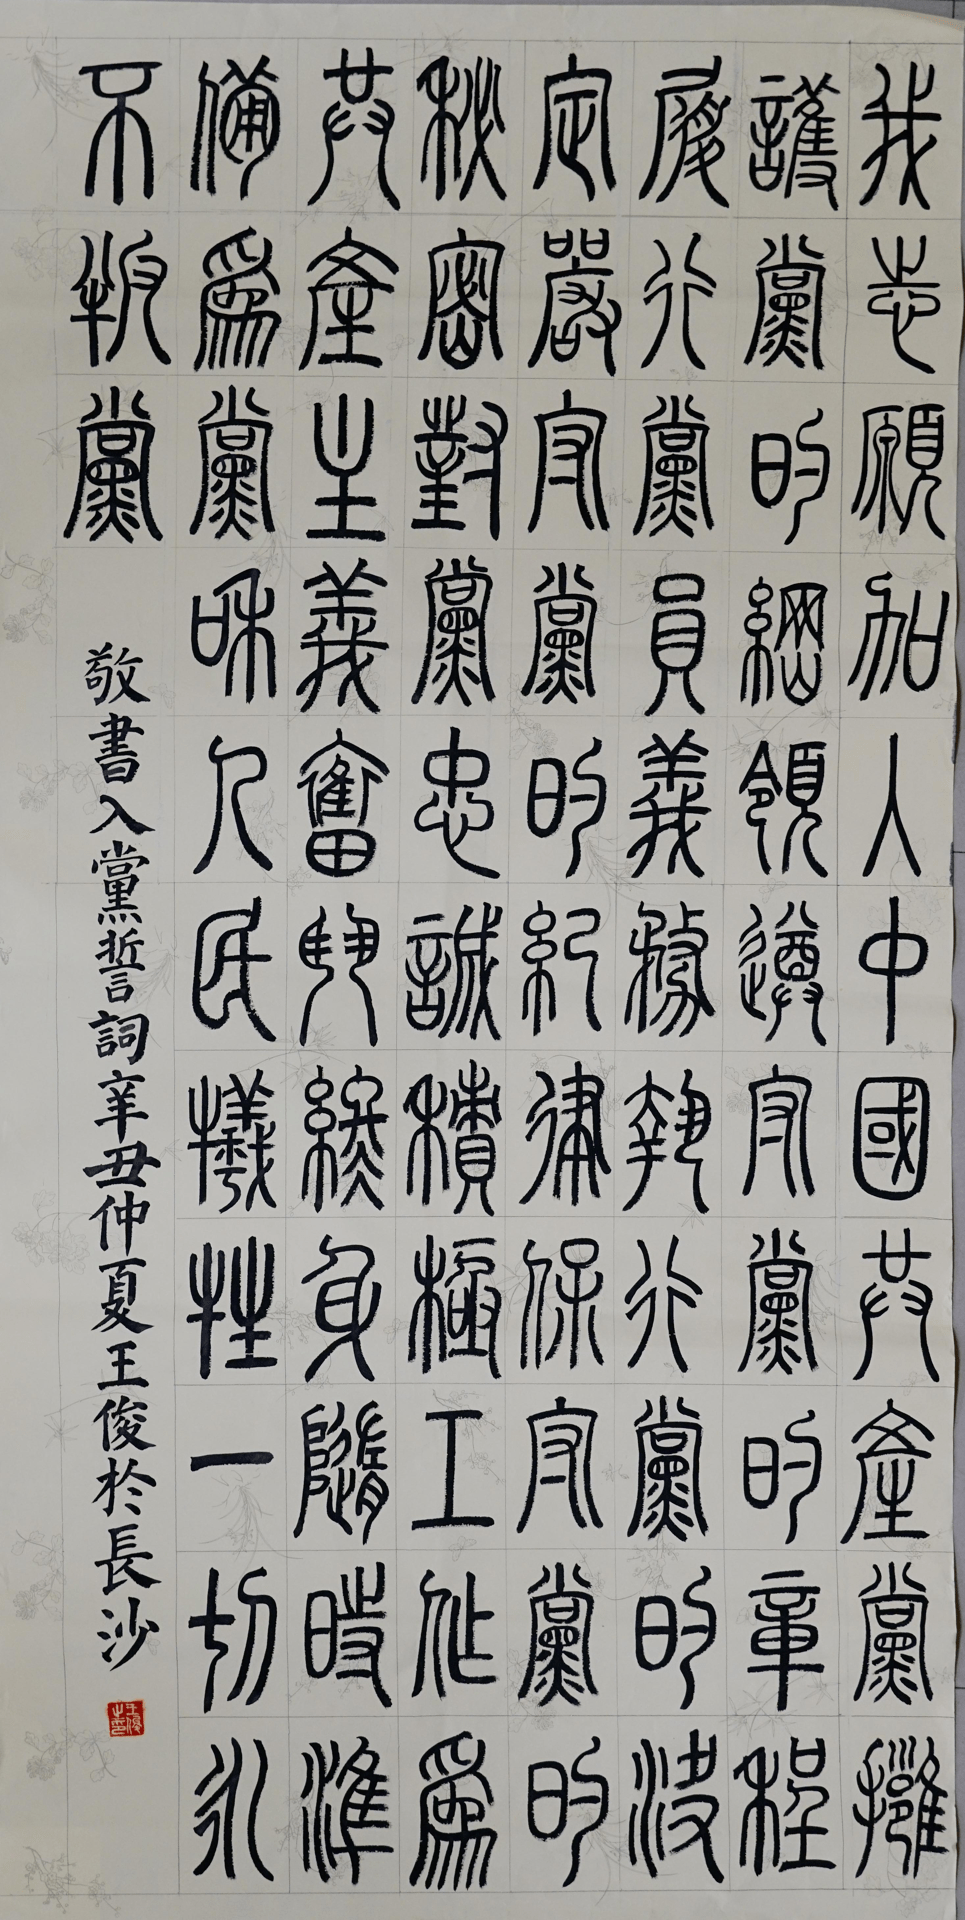 我志願加入中國共產黨擁
護黨的綱領遵守黨的章程
履行黨員義務執行黨的決
定嚴守黨的紀律保守黨的
秘密對黨忠誠積極工作爲
共產主義奮鬥終身隨時準
備爲黨和人民犧牲一切永
不叛黨
敬書入黨誓詞辛丑仲夏王俊於長沙
王俊之印